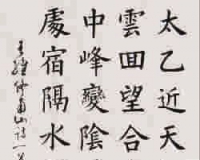 太乙近天
雲回望合
中峰變陰
處宿隔水
王維終南山詩一